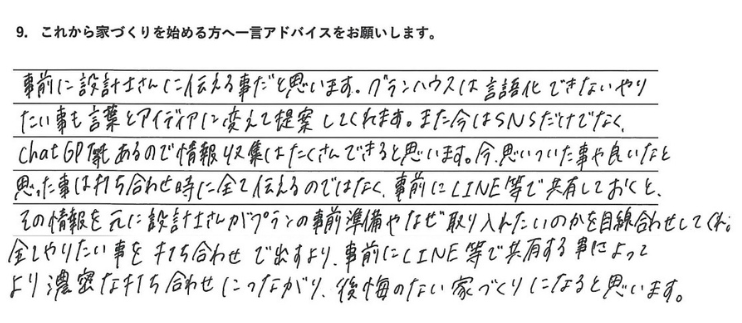 9. これから家づくりを始める方へ一言アドバイスをお願いします。
事前に設計士さんに伝える事だと思います。グランハウスは言語化できないやり
たい事も言葉とアイディアに変えて提案してくれます。また今はSNSだけでなく、
chatGPT等あるので情報収集はたくさんできると思います。今、思いついた事や良いなと
思った事は打ち合わせ時に全て伝えるのではなく、事前にLINE等で共有しておくと、
その情報を元に設計士さんがプランの事前準備やなぜ取り入れたいのかを目線合わせしてくれ。
全てやりたい事を打ち合わせで出すより、事前にLINE等で共有する事によって
より濃密な打ち合わせにつながり、後悔のない家づくりになると思います。